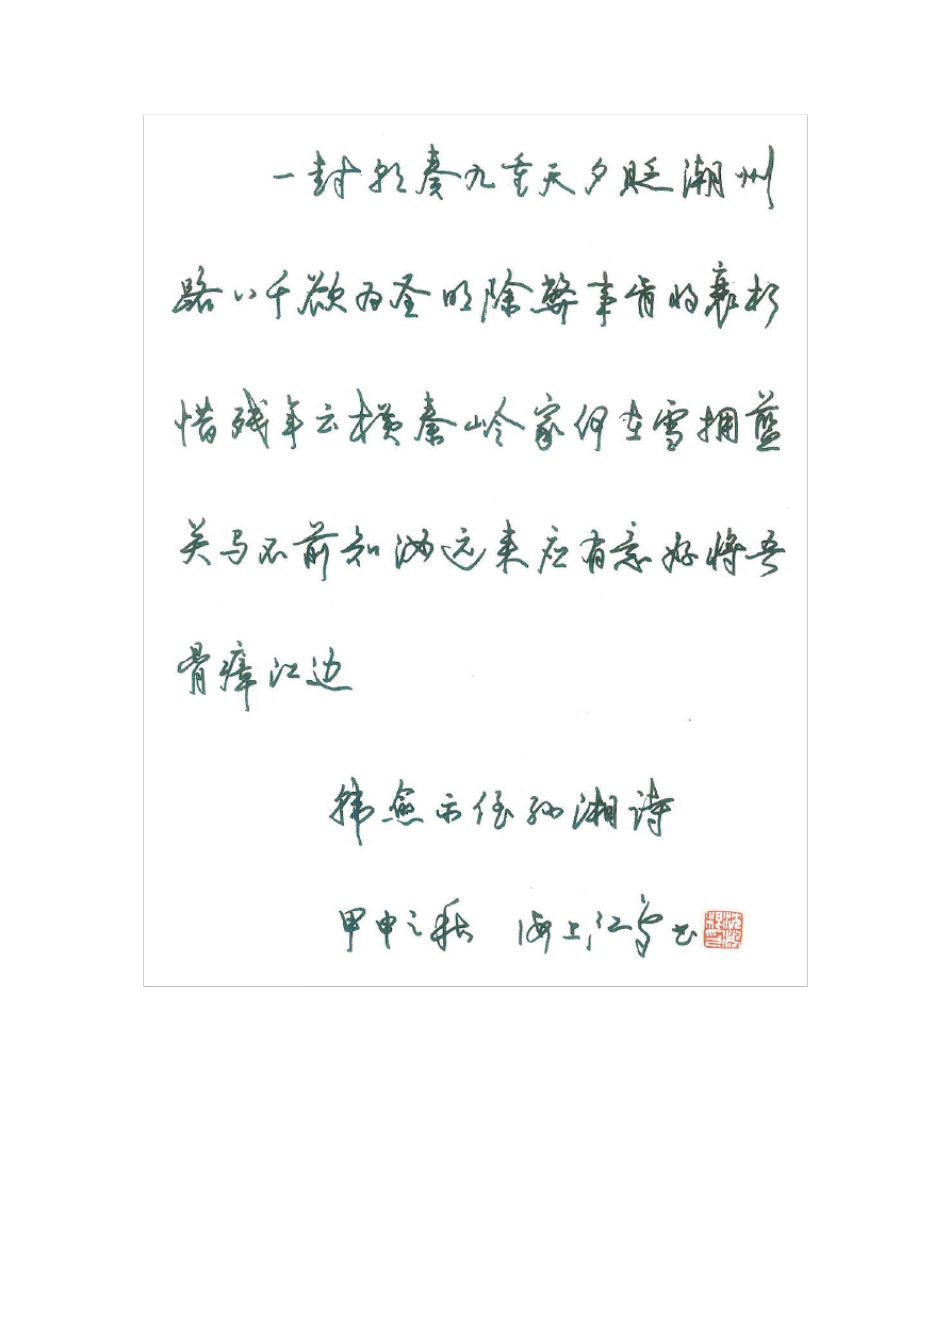 一封朝奏九重天夕贬潮州
路八千欲为圣明除弊事肯将衰朽
惜残年云横秦岭家何在雪拥蓝
关马不前知汝远来应有意好将吾
骨瘴江边
韩愈示侄孙湘诗
甲申之秋 海上江鸟书
沈鸿根印